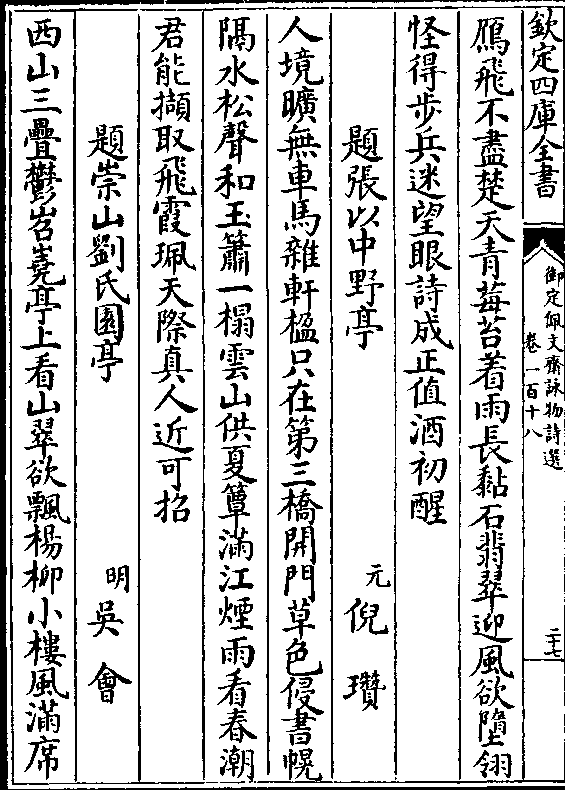 欽定四庫全書
御定佩文齋詠物詩選
卷一百十八
二十七
鴈飛不盡楚天青莓苔着雨長黏石翡翠迎風欲墮翎
怪得步兵迷望眼詩成正值酒初醒
題張以中野亭
元倪瓚
人境曠無車馬雜軒楹只在第三橋開門草色侵書幌
隔水松聲和玉簫一榻雲山供夏簟滿江煙雨看春潮
君能擷取飛霞珮天際真人近可招
題崇山劉氏園亭
明吳會
西山三疊鬱岧嶤亭上看山翠欲飄楊柳小樓風滿席